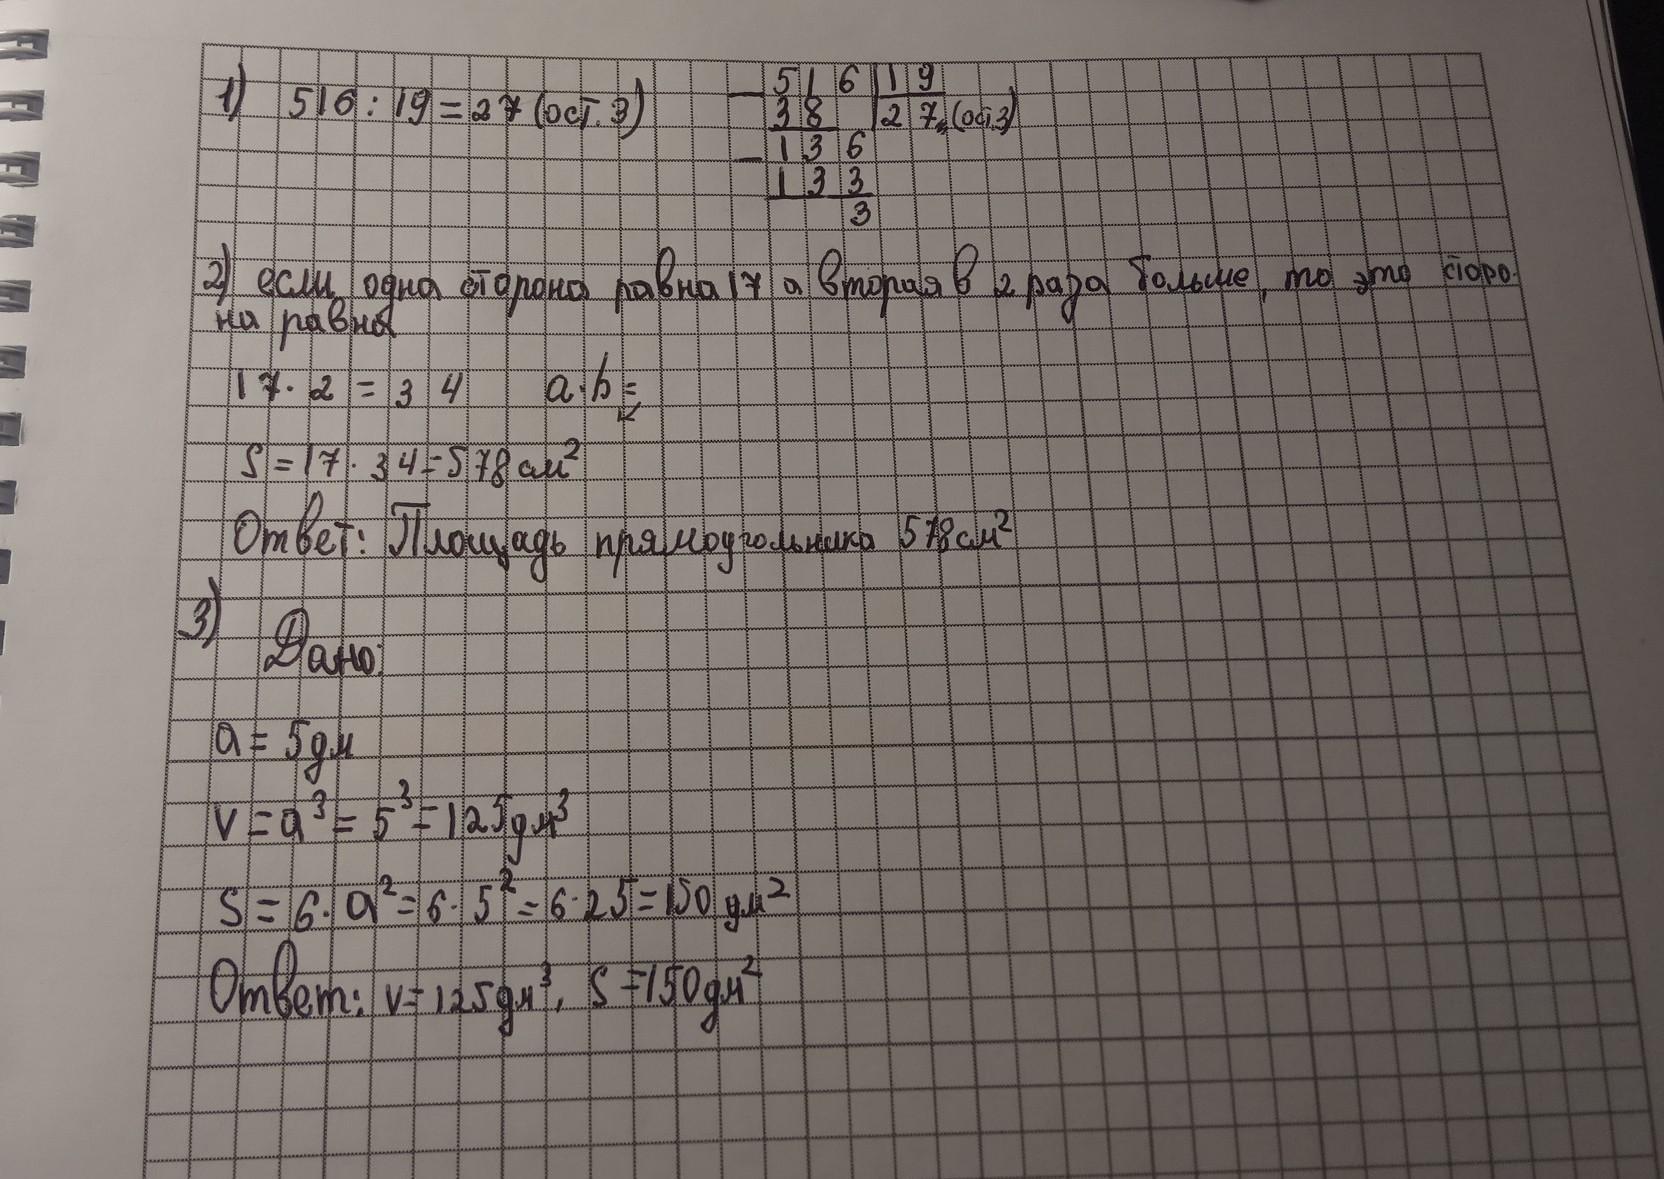 1) 516 : 19 = 27 (ост. 3)
516 | 19
38 | 27 (ост3)
136
133
3
2) если одна сторона равна 17 а вторая в 2 раза больше, то это сторо-
на равна
17 · 2 = 34 a · b =
S = 17 · 34 = 578 см²
Ответ: Площадь прямоугольника 578 см²
3) Дано:
a = 5 дм
V = a³ = 5³ = 125 дм³
S = 6 · a² = 6 · 5² = 6 · 25 = 150 дм²
Ответ: V = 125 дм³, S = 150 дм²